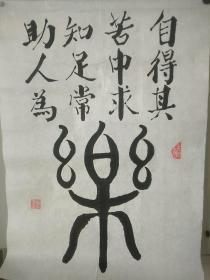 自得其
苦中求
知足常
助人為
樂